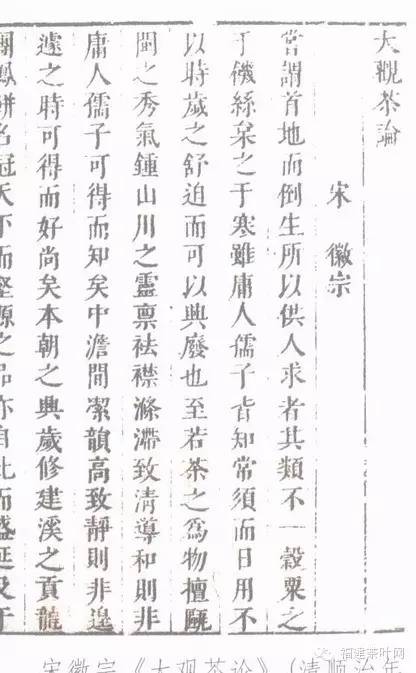 大觀茶論
宋 徽宗
嘗謂首地而倒生所以供人求者其類不一穀粟之
于饑絲枲之于寒雖庸人儒子皆知常須而日用不
以時歲之舒迫而可以興廢也至若茶之爲物擅甌
閩之秀氣鍾山川之靈禀祛襟滌滯致清導和則非
庸人儒子可得而知矣中澹間潔韻高致靜則非遑
遽之時可得而好尚矣本朝之興歲修建溪之貢龍
團鳳餅名冠天下而壑源之品亦自此而盛延及于
宋徽宗《大观茶论》(清顺治年
福建茶叶网